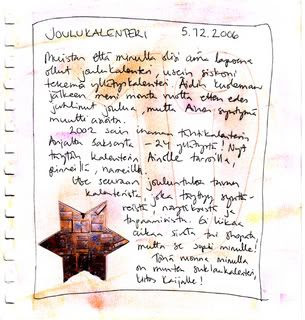 JOULUKALENTERI 5.12.2006
Muistan että minulla olisi aina lapsena
ollut joulukalenteri, usein siskoni
tekemä yllätyskalenteri. Äidin kuoleman
jälkeen meni monta vuotta etten edes
juhlinut joulua, mutta Ainon syntymä
muutti asiota.
2002 sain ihanan tähtikalenterin
Anjalta Saksasta - 24 yllätystä! Nyt
täytän kalenterin Ainolle tarroilla,
pinneillä, nameilla.
Itse seuraan jouluntuloa tämän
kalenterista, joka täyttyy syntt-
reistä, näytöksistä ja
tapaamisista. Ei liikaa
aikaa siivota tai shopata,
mutta se sopii minulle!
Tänä vuonna minulla
on muuten suklaakalenteri,
kiitos Kaijalle!